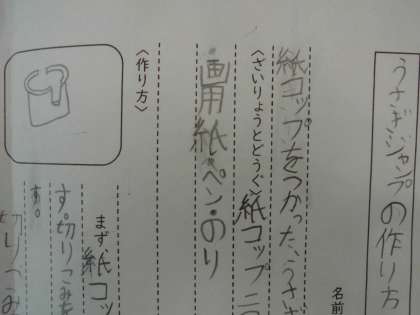 うさぎジャンプの作り方
名前
紙コップをつかった、うさぎ
〈ざいりょうとどうぐ〉紙コップ二
画用紙・ペン・のり
〈作り方〉
まず紙コッ
す。切りこみを
す。
切りこみ